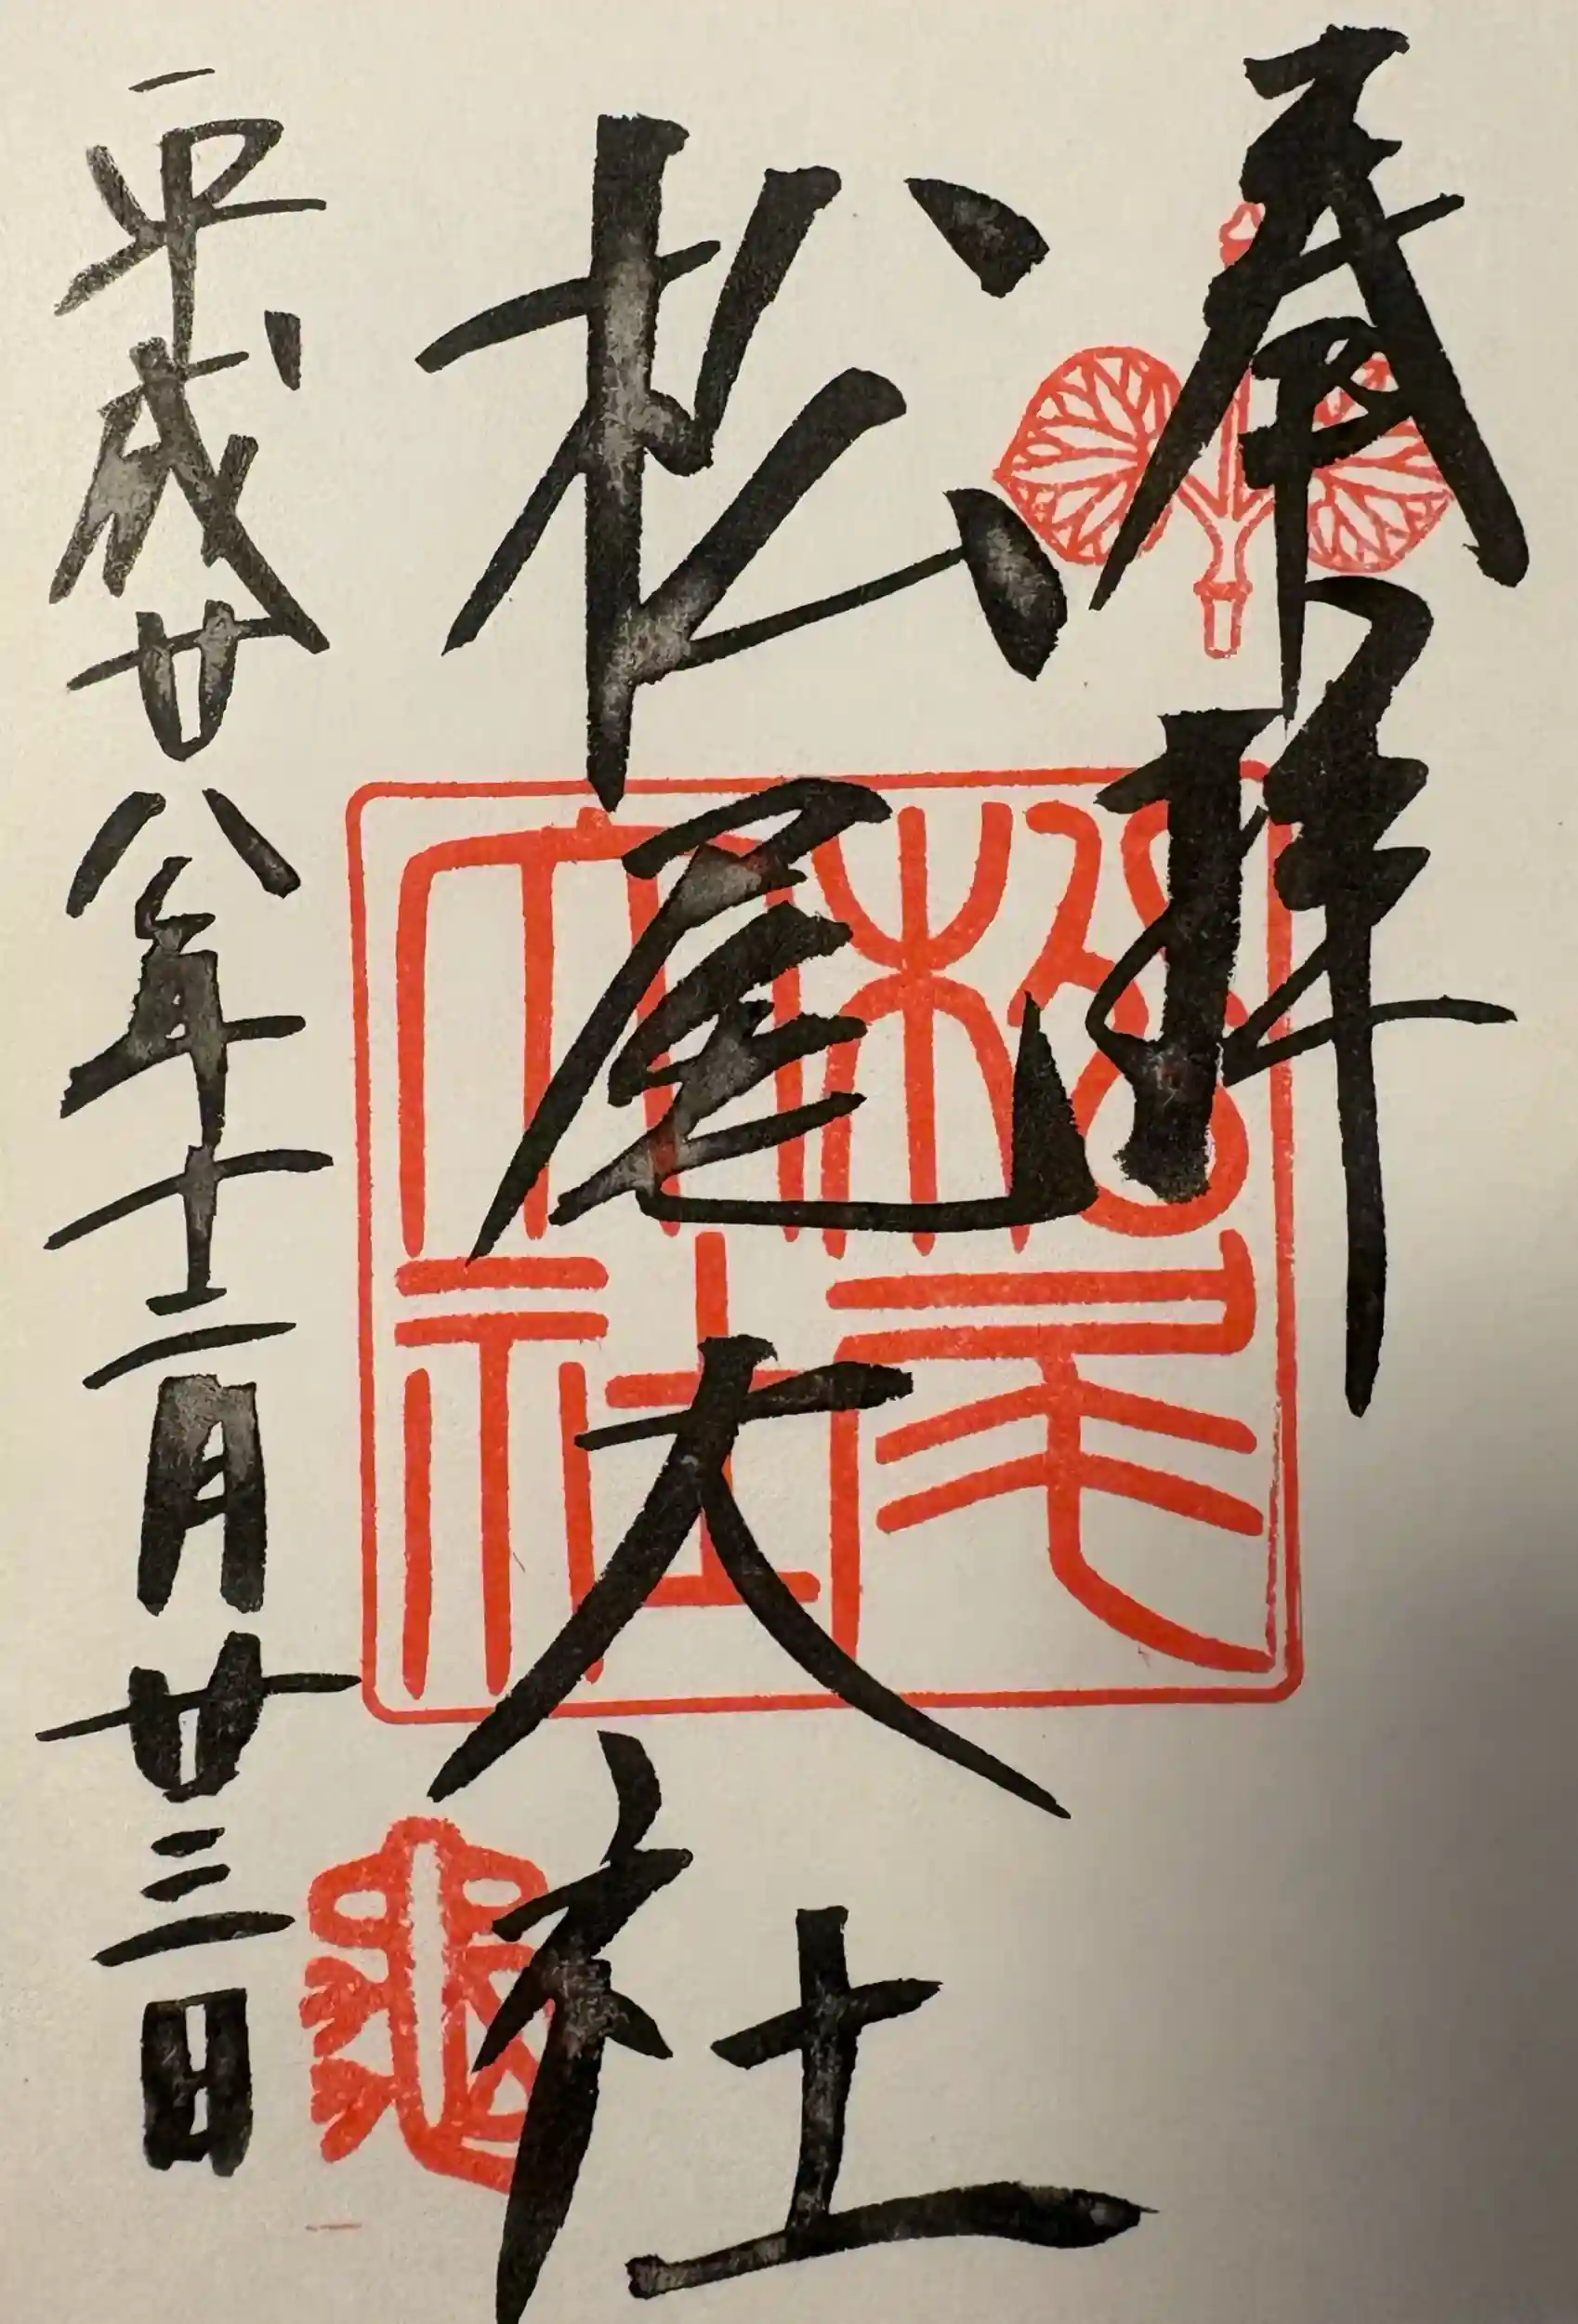 奉拝
松尾大社
平成廿八年十二月廿三日
松尾大社
龜